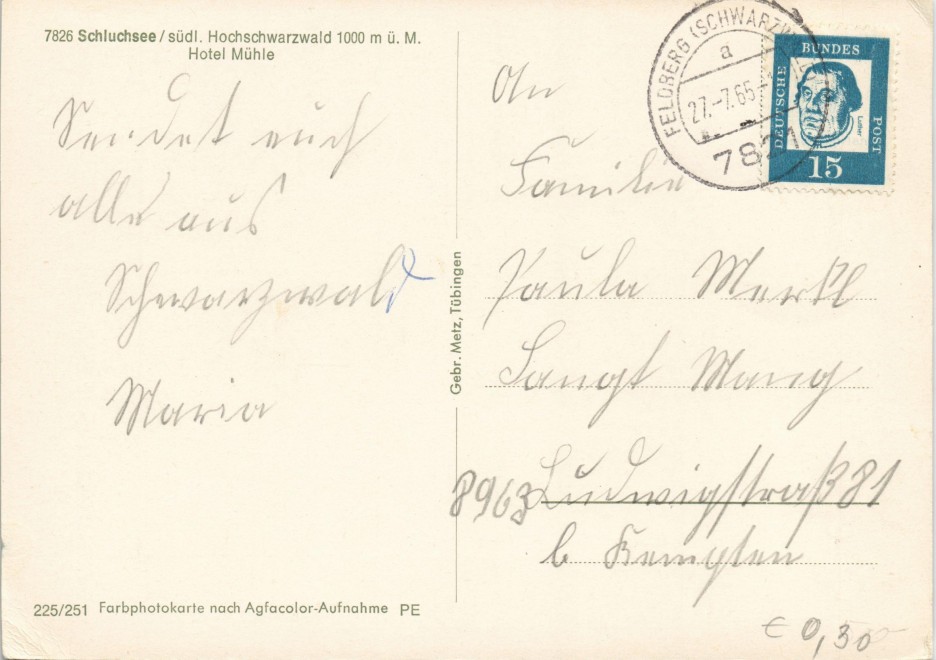 7826 Schluchsee / südl. Hochschwarzwald 1000 m ü. M.
Hotel Mühle
Sendet euch
alle aus
Schwarzwald
Maria
225/251 Farbphotokarte nach Agfacolor-Aufnahme PE
Gebr. Metz, Tübingen
FELDBERG (SCHWARZW
a
27.-7.65-
7821
DEUTSCHE
BUNDES
POST
Luther
15
An
Familie
Paula Merkl
Sangt Mang
8963 Ludwigstraß 81
b Kempten
€ 0,30